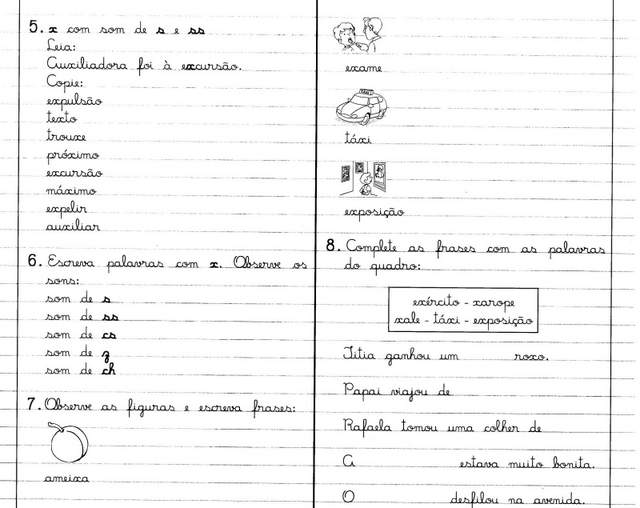 5. x com som de s e ss
Leia:
Auxiliadora foi à excursão.
Copie:
expulsão
texto
trouxe
próximo
excursão
máximo
expelir
auxiliar
6. Escreva palavras com x. Observe os
sons:
som de s
som de ss
som de cs
som de z
som de ch
7. Observe as figuras e escreva frases:
ameixa
exame
táxi
exposição
8. Complete as frases com as palavras
do quadro:
exército - xarope
xale - táxi - exposição
Titia ganhou um roxo.
Papai viajou de
Rafaela tomou uma colher de
A estava muito bonita.
O desfilou na avenida.